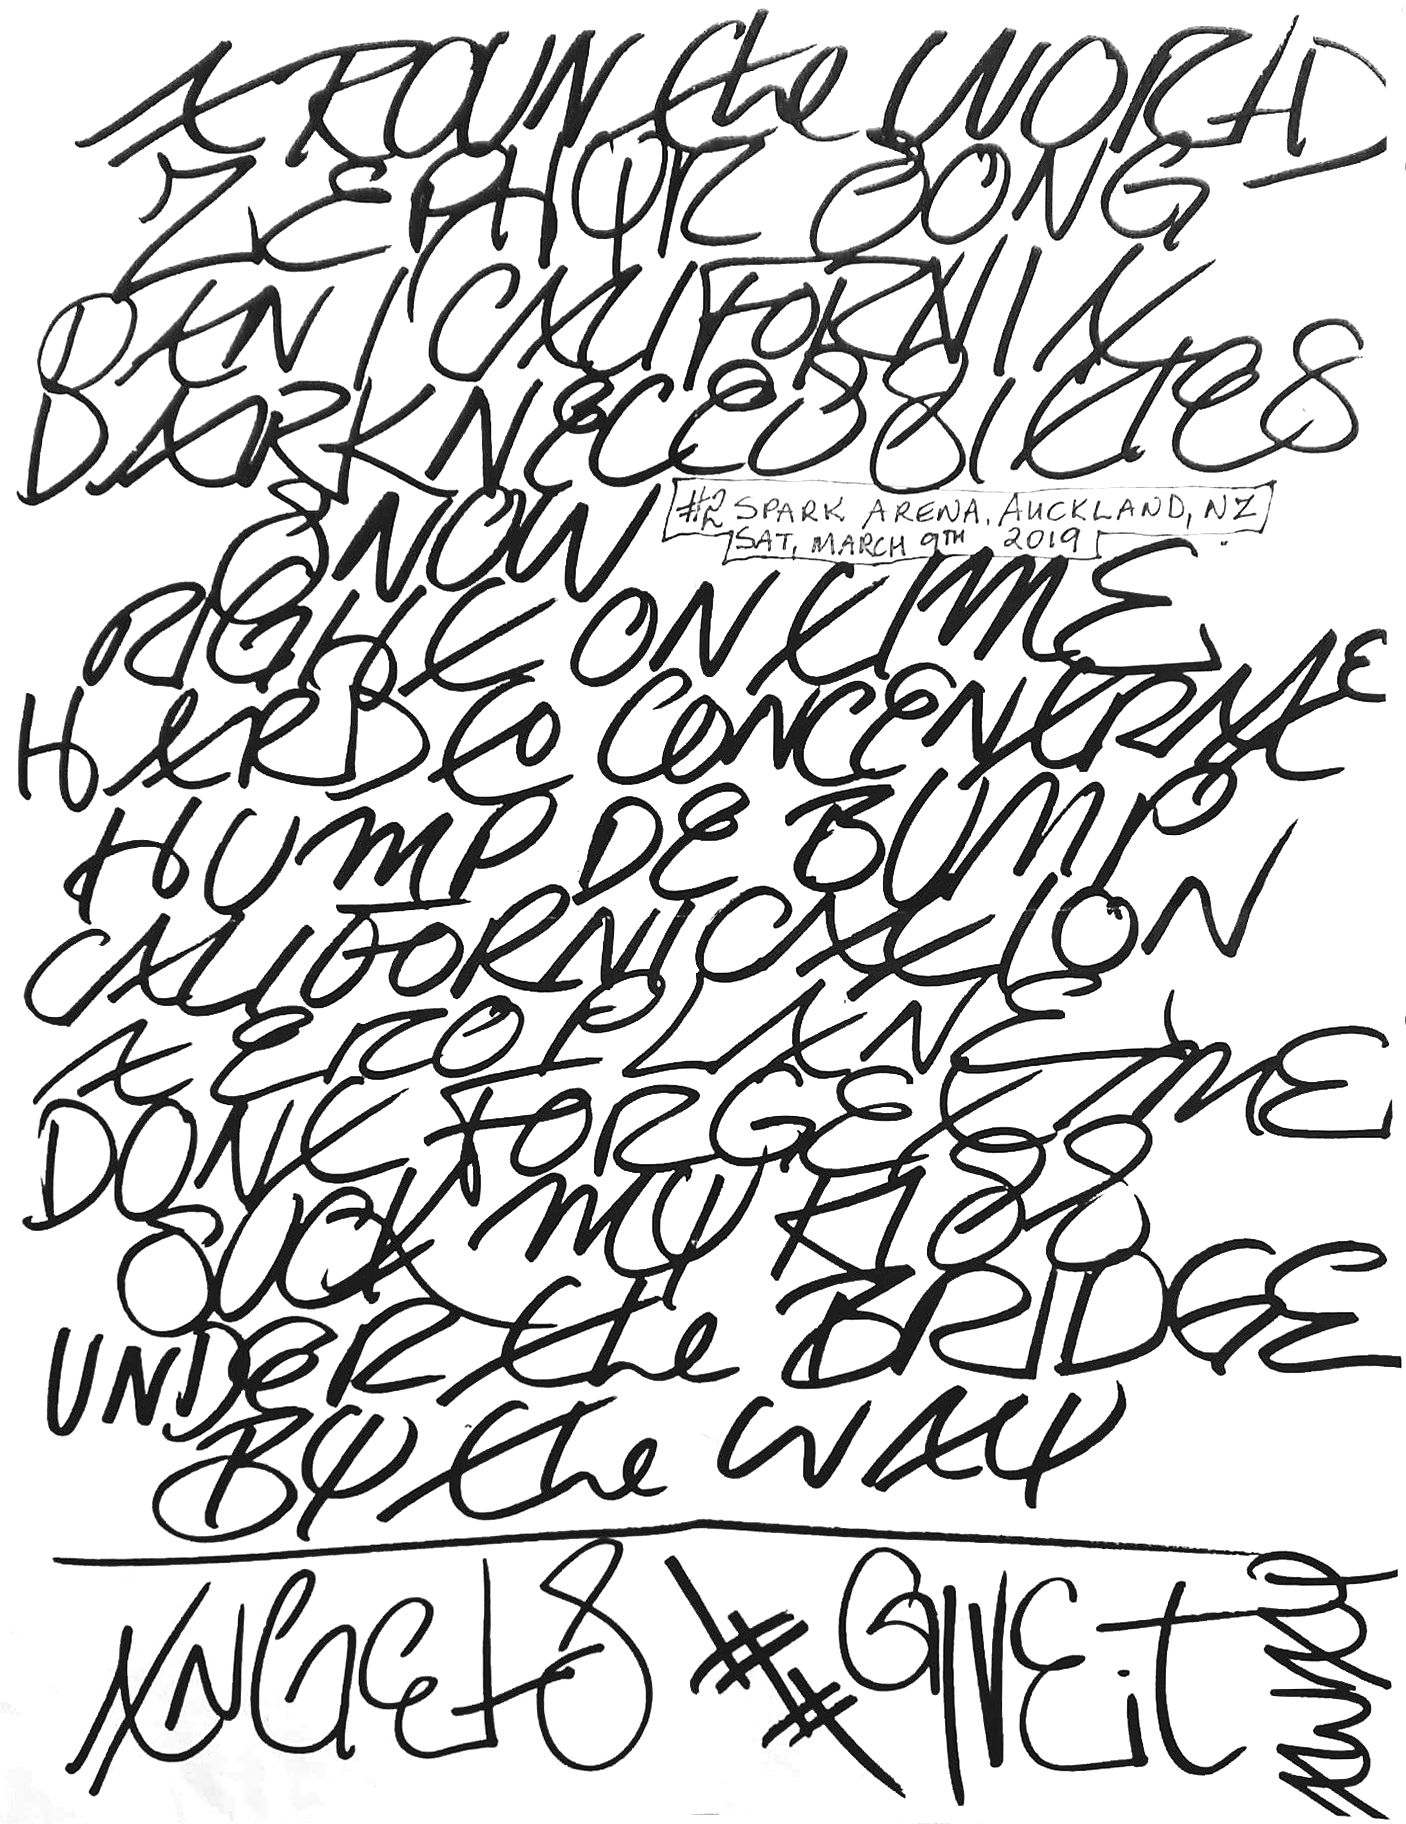 AROUN the WORLD
ZEPHYR SONG
DANI CALIFORNIA
DARK NECESSITIES
SNOW
#2 SPARK ARENA, AUCKLAND, NZ
SAT, MARCH 9TH 2019
RIGHT ON TIME
HARD TO CONCENTRATE
HUMP DE BUMP
CALIFORNICATION
AEROPLANE
DONT FORGET ME
SUCK MY KISS
UNDER the BRIDGE
BY the WAY
ANGELS
GIVE it